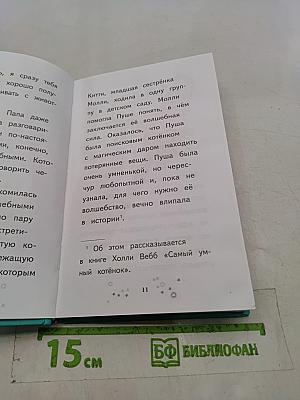 , я сразу тебя
хорошо полу-
вивать с живот-
Папа даже
разговари-
по-настоя-
конечно,
бными. Кото-
говорить че-
комилась
шебными
но пару
стрети-
стую ко-
лежащую
которым
Китти, младшая сестрёнка
Молли, ходила в одну груп-
пу в детском саду. Молли
помогла Пуше понять, в чём
заключается её волшебная
сила. Оказалось, что Пуша
была поисковым котёнком
с магическим даром находить
потерянные вещи. Пуша была
очень умненькой, но черес-
чур любопытной и, пока не
узнала, для чего нужно её
волшебство, вечно влипала
в истории¹.
¹ Об этом рассказывается
в книге Холли Вебб «Самый ум-
ный котёнок».
11
15 см
БФ БИБЛИОФАН